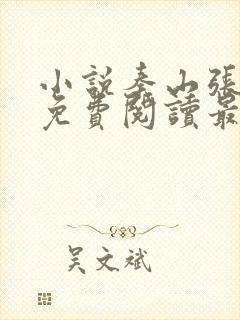 小說泰山張
免費閱讀最
吳文斌